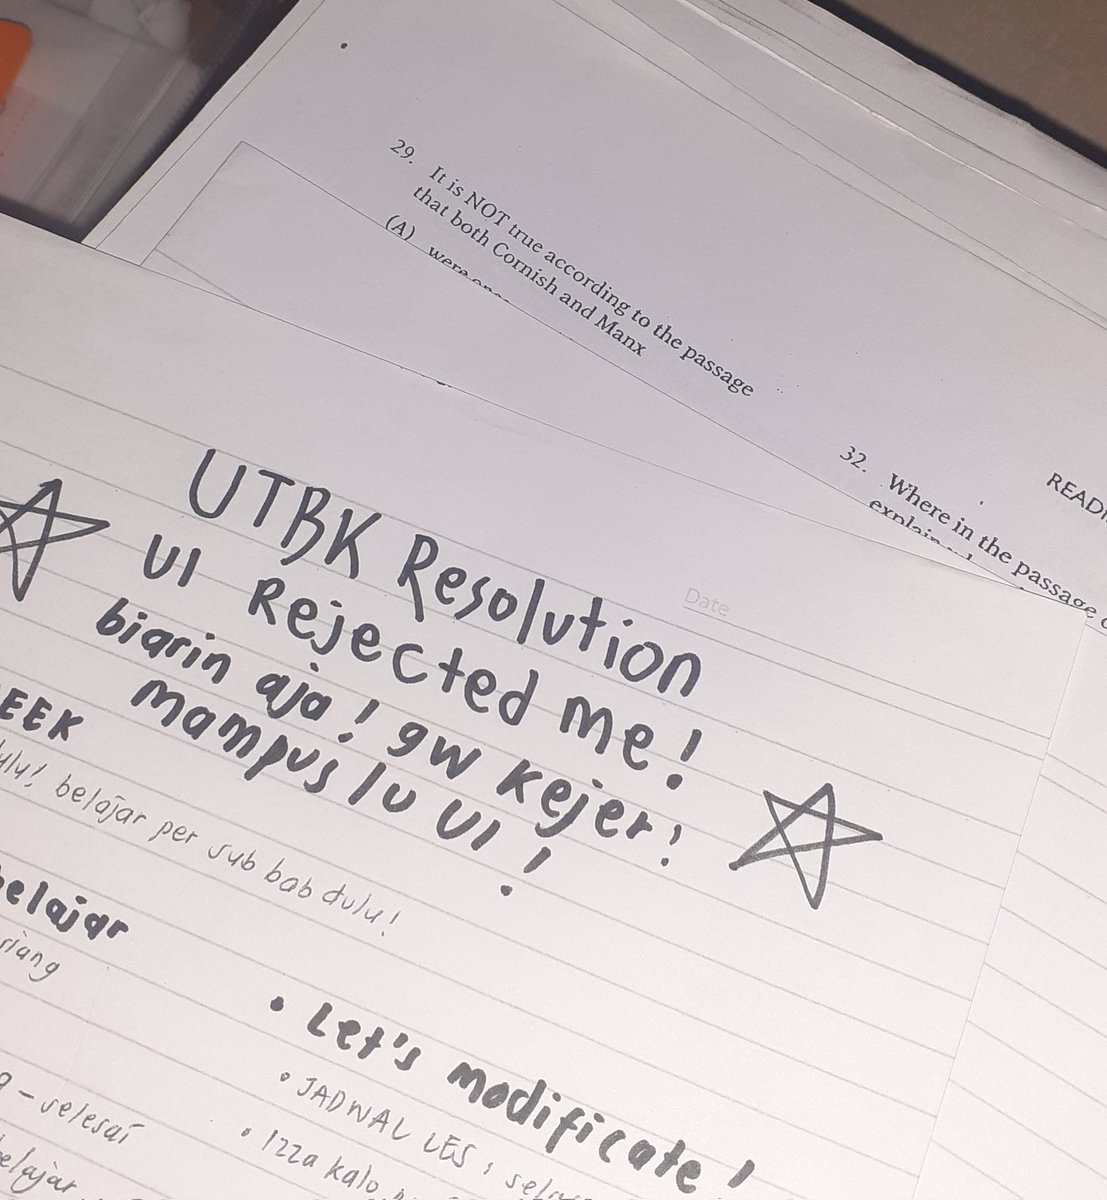 29. It is NOT true according to the passage
that both Cornish and Manx
(A) were
32. Where in the passage
Date
UTBK Resolution
UI Rejected me!
biarin aja! gw kejer!
mampus lu UI!
EEK
belajar per sub bab dulu!
belajar
siang
- selesai
belajar
• Let's modificate!
• JADWAL LES :
• Izza kalo